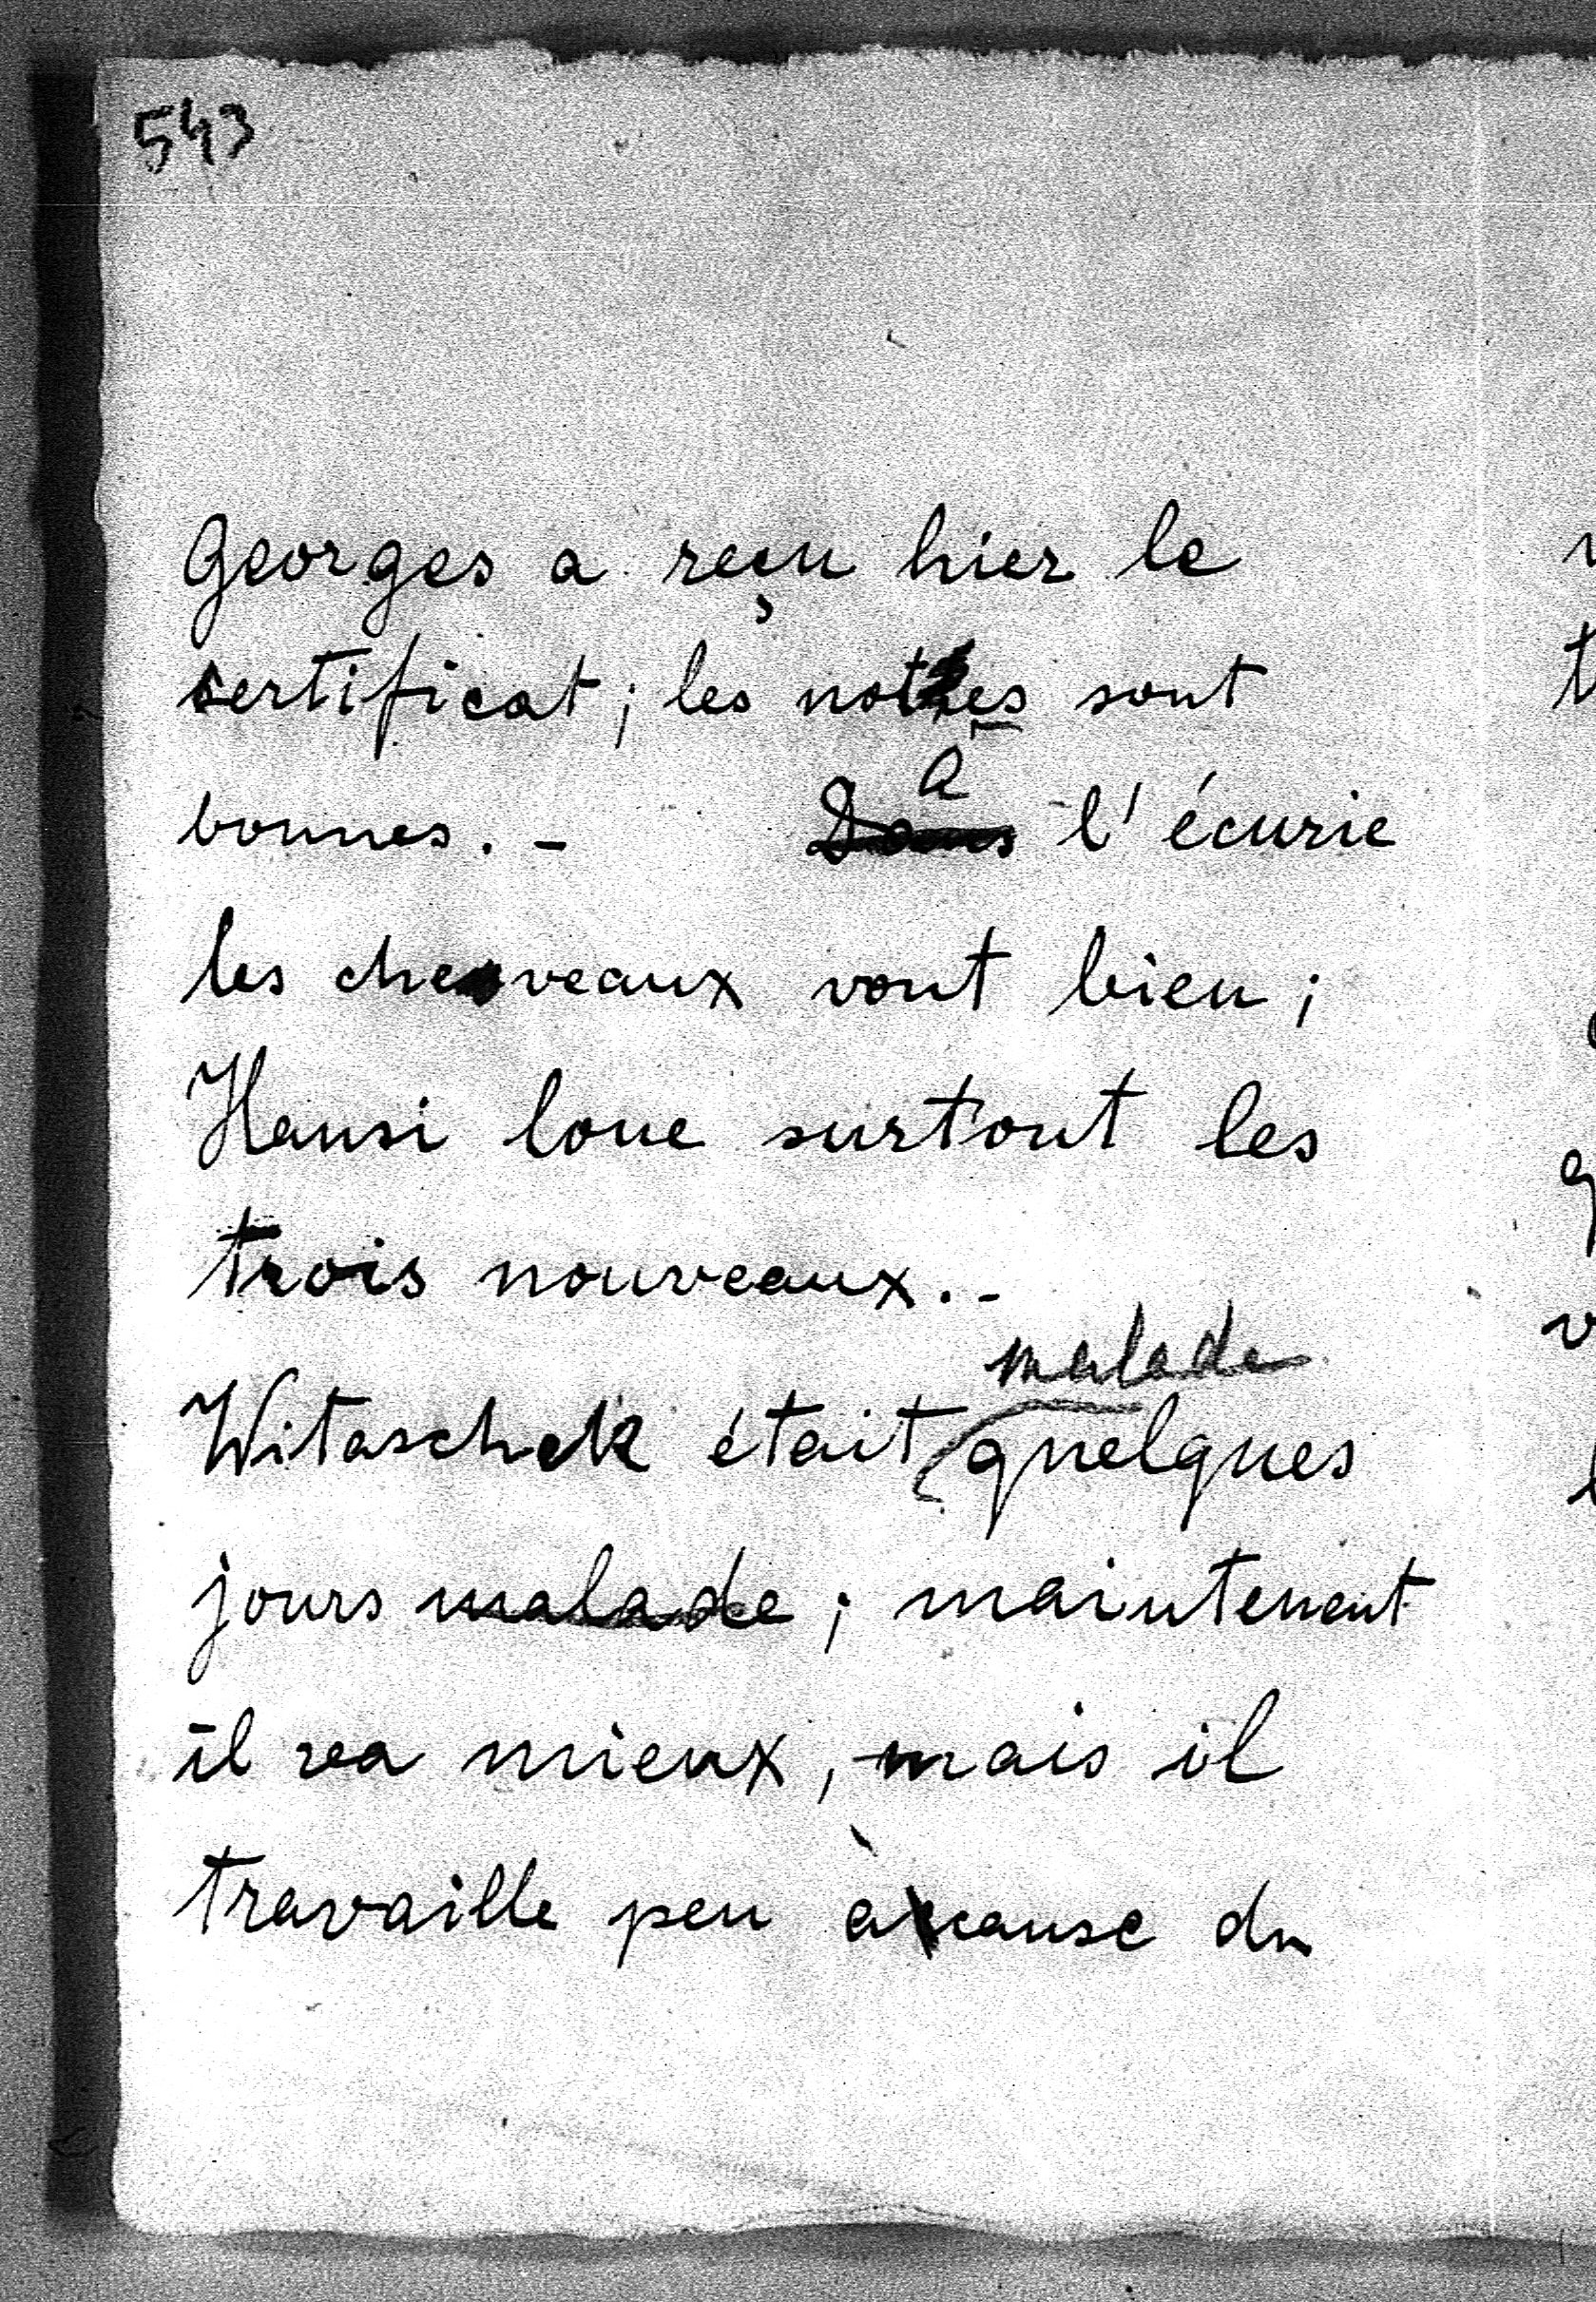 543
Georges a reçu hier le
certificat; les notes sont
bonnes. - A l'écurie
les cheveaux vont bien;
Hansi loue surtout les
trois nouveaux. -
malade
Witaschek était quelques
jours malade; maintenent
il va mieux, mais il
travaille peu à cause du